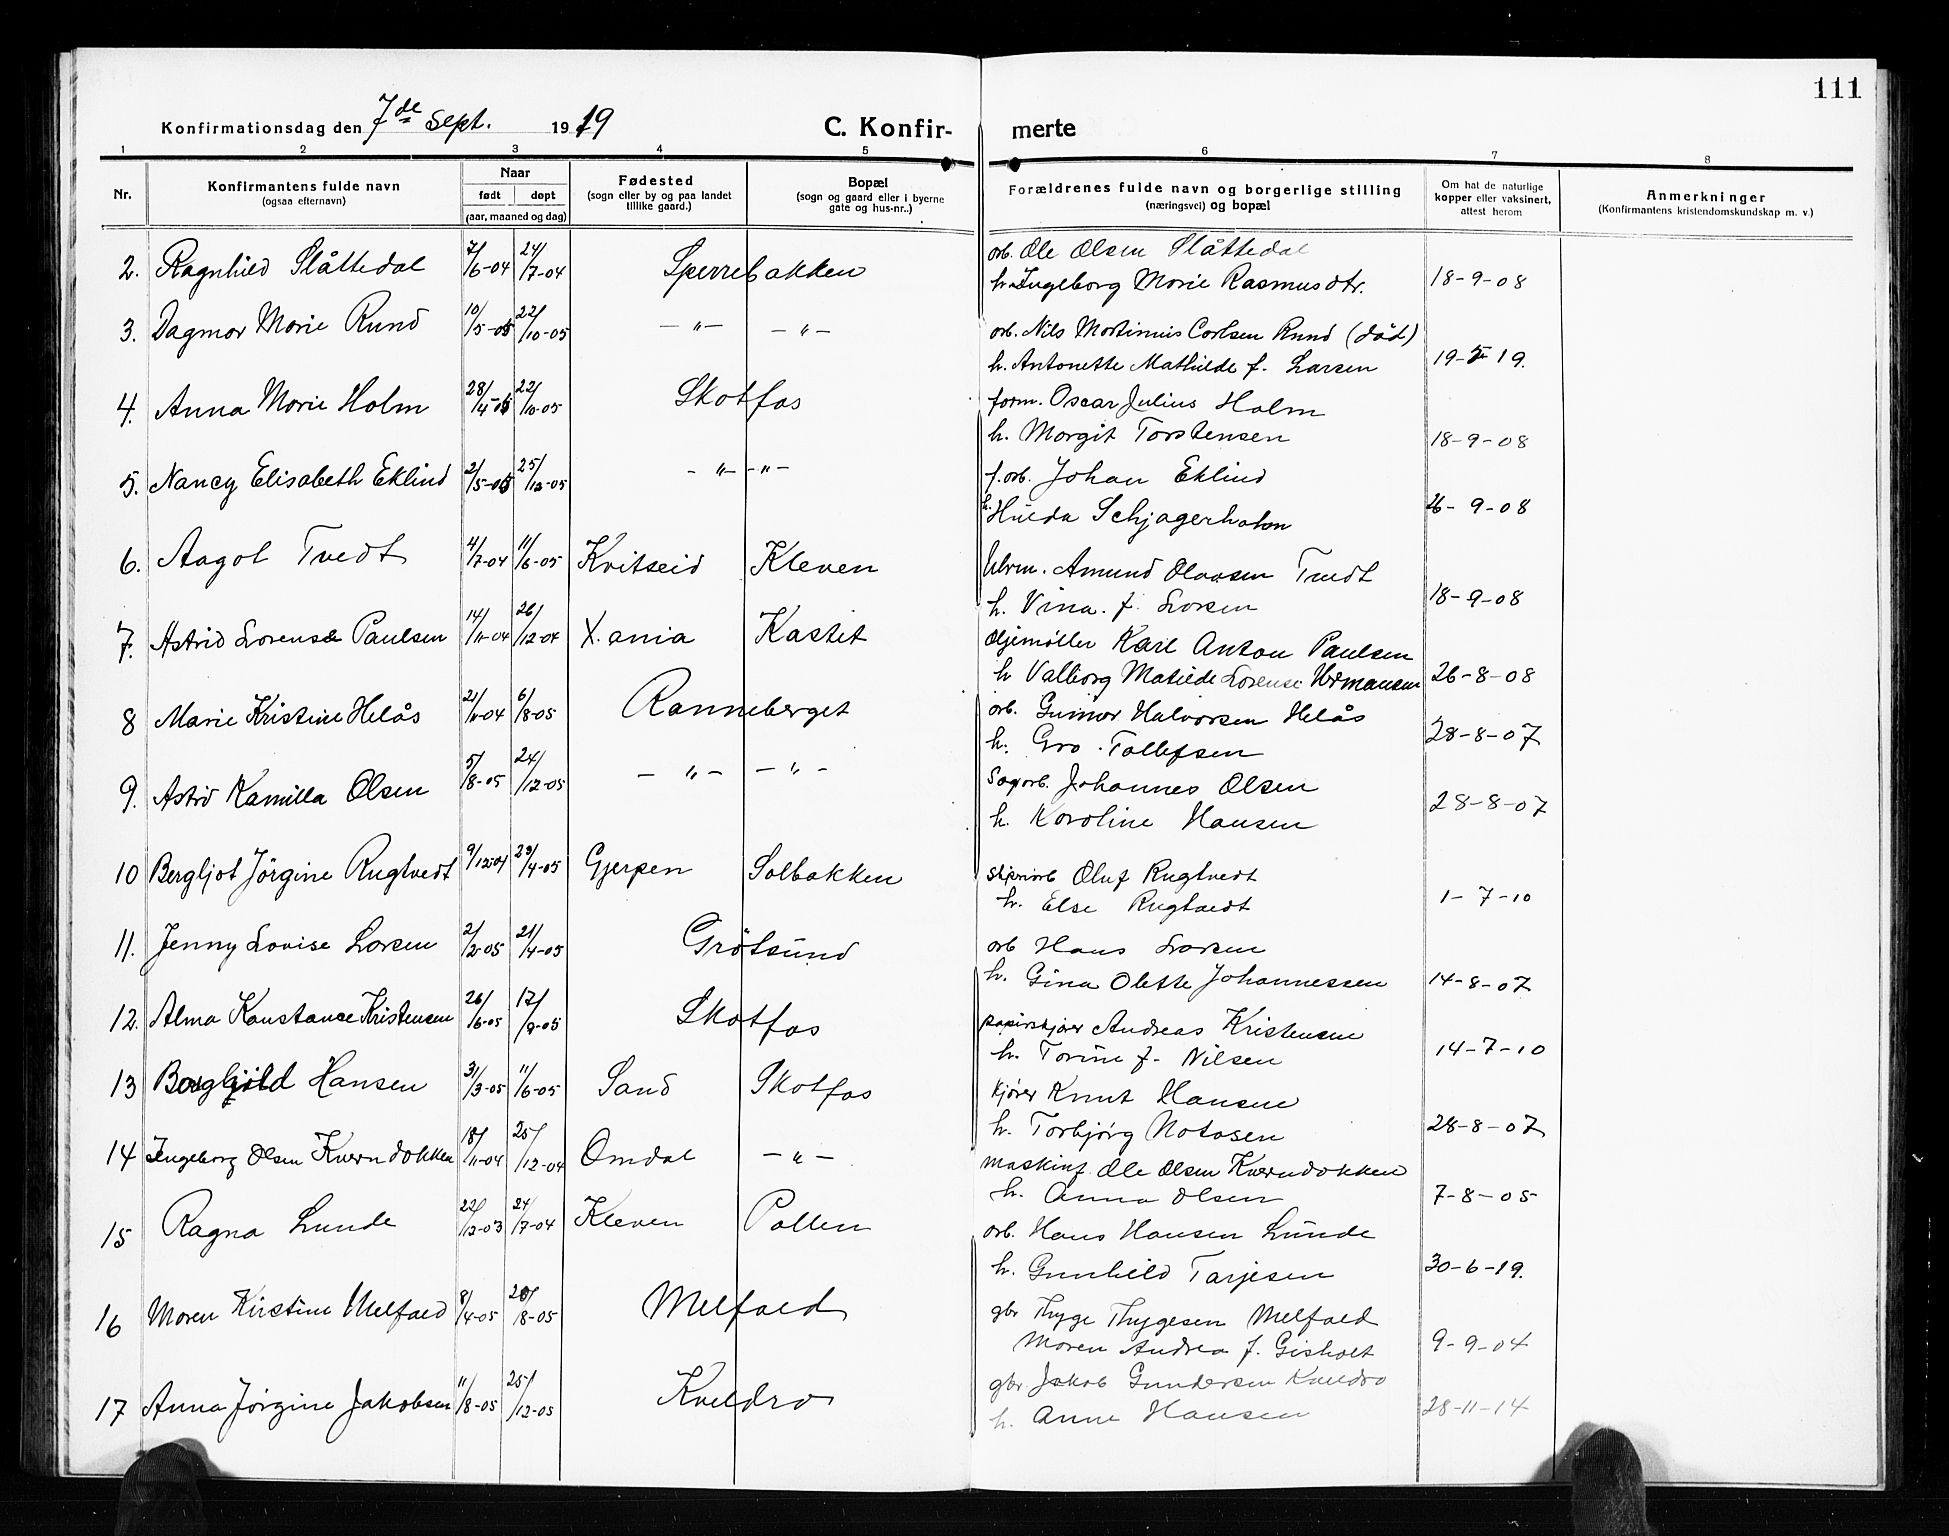 111
Konfirmationsdag den 7de sept. 1919 C. Konfir- merte
1 2 3 4 5 6 7 8
Nr.
Konfirmantens fulde navn
(ogsaa efternavn)
Naar
født døpt
(aar, maaned og dag)
Fødested
(sogn eller by og paa landet
tillike gaard.)
Bopæl
(sogn og gaard eller i byerne
gate og hus-nr..)
Forældrenes fulde navn og borgerlige stilling
(næringsvei) og bopæl
Om hat de naturlige
kopper eller vaksinert,
attest herom
Anmerkninger
(Konfirmantens kristendomskundskap m. v.)
2. Ragnhild Slåttedal 7/6-04 24/7-04 Sperrebakken arb. Ole Olsen Slåttedal
h. Ingeborg Marie Rasmusdtr. 18-9-08
3. Dagmar Marie Rund 10/5-05 22/10-05 -"- -"- arb. Nils Martinius Carlsen Rund (død)
h. Antonette Mathilde f. Larsen 19-5-19.
4. Anna Marie Holm 28/4-05 22/10-05 Skotfos form. Oscar Julius Holm
h. Margit Torstensen 18-9-08
5. Nancy Elisabeth Eklind 2/5-05 25/12-05 -"- -"- f.arb. Johan Eklind
h. Hulda Schjagerholm 26-9-08
6. Aagot Tvedt 4/7-04 11/6-05 Kvitseid Kleven Amund Olavsen Tvedt
h. Vina f. Larsen 18-9-08
7. Astrid Lorense Paulsen 14/11-04 26/12-04 X.ania Kastet Oljemøller Karl Anton Paulsen
h. Valborg Matilde Lorense Hermansen 26-8-08
8 Marie Kristine Helås 21/11-04 6/8-05 Ranneberget arb. Gunnar Halvorsen Helås
h. Gro Tollefsen 28-8-07
9. Astrid Kamilla Olsen 5/8-05 24/12-05 -"- -"- Sagarb. Johannes Olsen
h. Karoline Hansen 28-8-07
10 Bergljot Jörgine Rugtvedt 9/12-04 23/4-05 Gjerpen Solbakken Oluf Rugtvedt
h. Else Rugtvedt 1-7-10
11. Jenny Lovise Larsen 2/2-05 21/4-05 Grötsund arb Hans Larsen
h. Gina Olette Johannessen 14-8-07
12. Alma Konstance Kristensen 26/6-05 17/9-05 Skotfos papirskjører Andreas Kristensen
h. Torine f. Nilsen 14-7-10
13 Hansen 31/3-05 11/6-05 Sand Skotfos kjører Knut Hansen
h. Torbjørg Notosen 28-8-07
14 Ingeborg Olsen Kverndokken 18/11-04 25/12-04 Omdal -"- maskinf. Ole Olsen Kverndokken
h. Anna Olsen 7-8-05
15 Ragna Lunde 22/12-03 24/7-04 Kleven Pollen arb. Hans Hansen Lunde
h. Gunhild Tarjesen 30-6-19.
16 Maren Kirstine Melfald 8/4-05 20/8-05 Melfald gbr Thyge Thygesen Melfald
Maren Andrea f. Gisholt 9-9-04
17 Anna Jørgine Jakobsen 11/8-05 25/12-05 Kveldro gbr Jakob Gundersen Kveldro
h. Anne Hansen 28-11-14